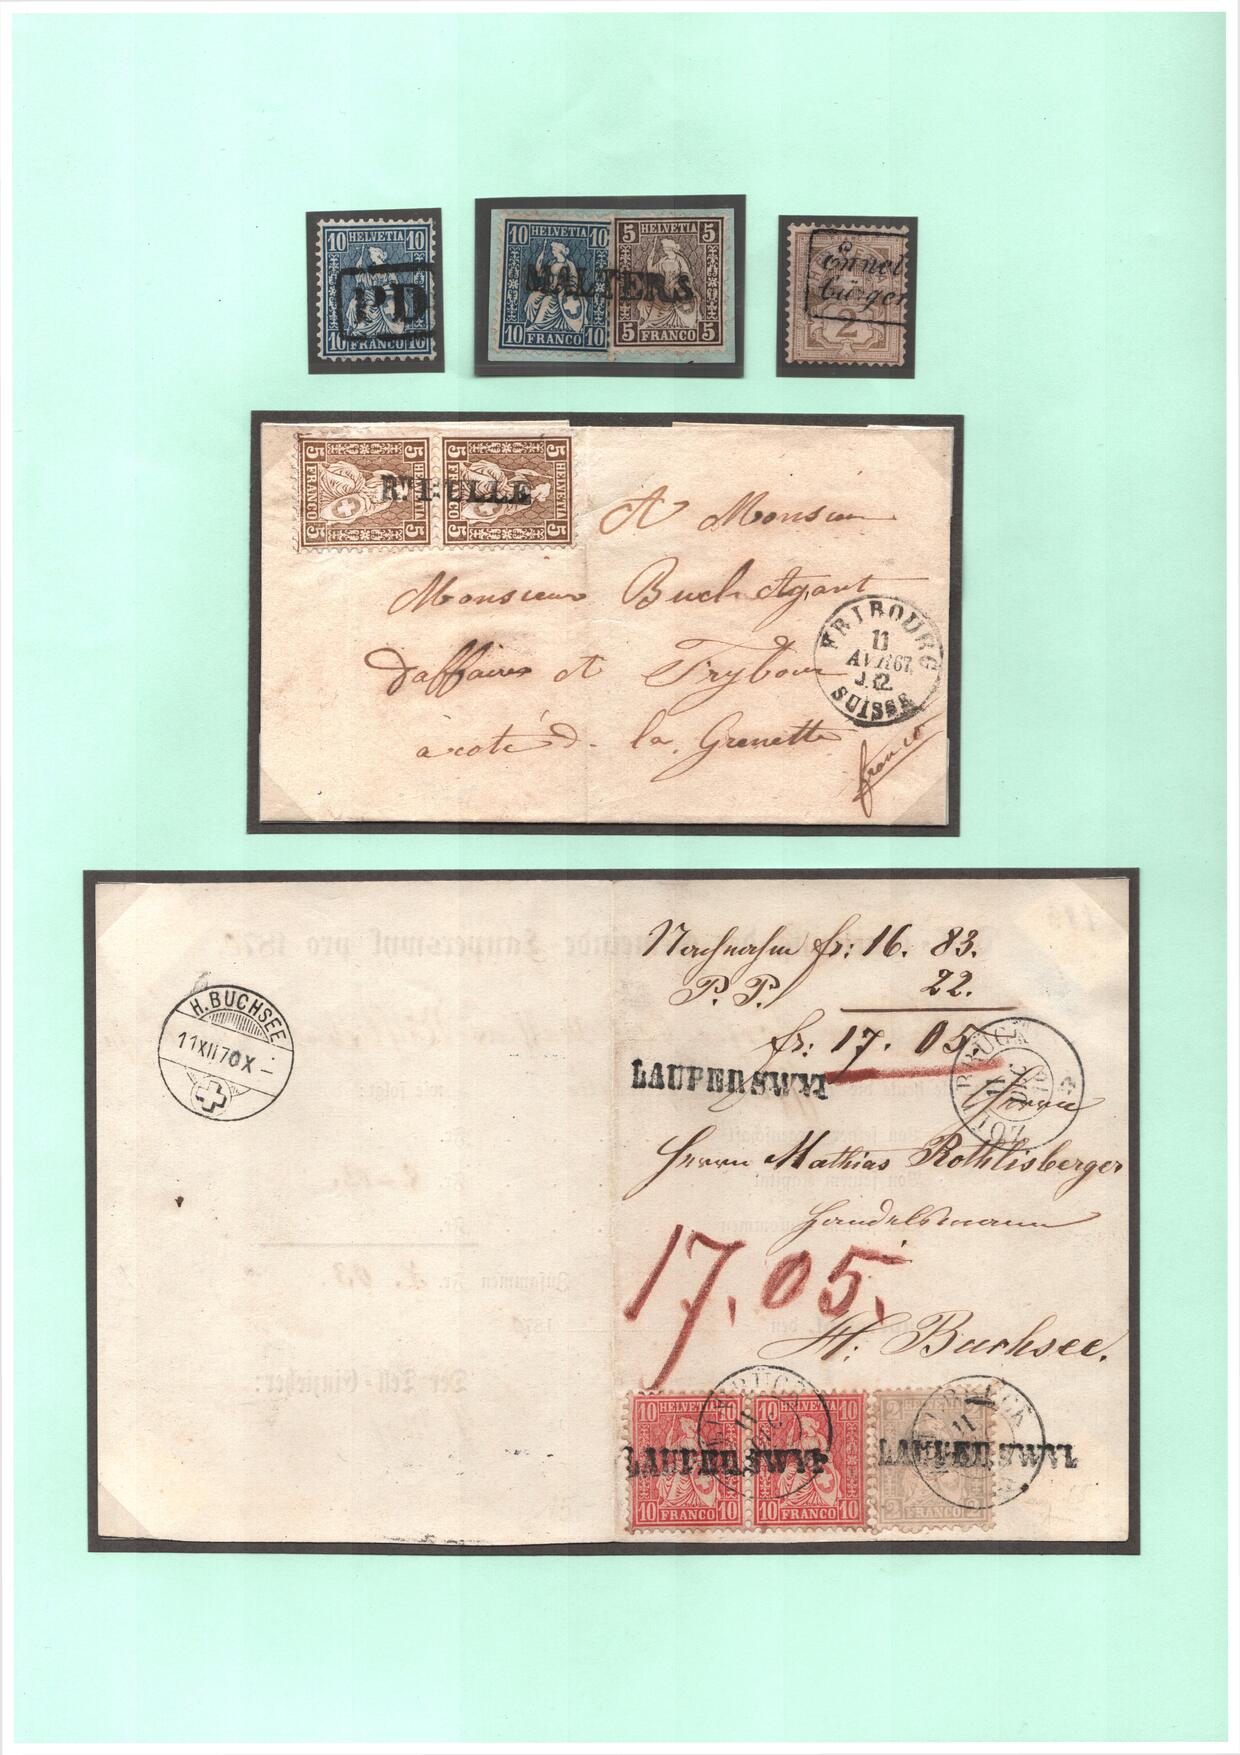 10 HELVETIA 10
PD
10 FRANCO 10
10 HELVETIA 10
5 HELVETIA 5
MALTERS
10 FRANCO 10
5 FRANCO 5
Ennet
bürgen
2
5 HELVETIA 5
5 FRANCO 5
5 HELVETIA 5
5 FRANCO 5
A Monsieur
Monsieur Buch Agant
d'affaires et Frybour
à coté d. la Grenette
franco
FRIBOURG
11
AVR 67
SUISSE
Nachnahm fr: 16. 83.
P. P. 22.
fr: 17. 05
LAUPERSWYL
H. BUCHSEE
11 XII 70 X
11
DEC
Herrn
Herrn Mathias Rothlisberger
Handelsmann
17.05.
H: Buchsee.
10 HELVETIA 10
10 HELVETIA 10
LAUPERSWYL
LAUPERSWYL
10 FRANCO 10
10 FRANCO 10
2 FRANCO 2